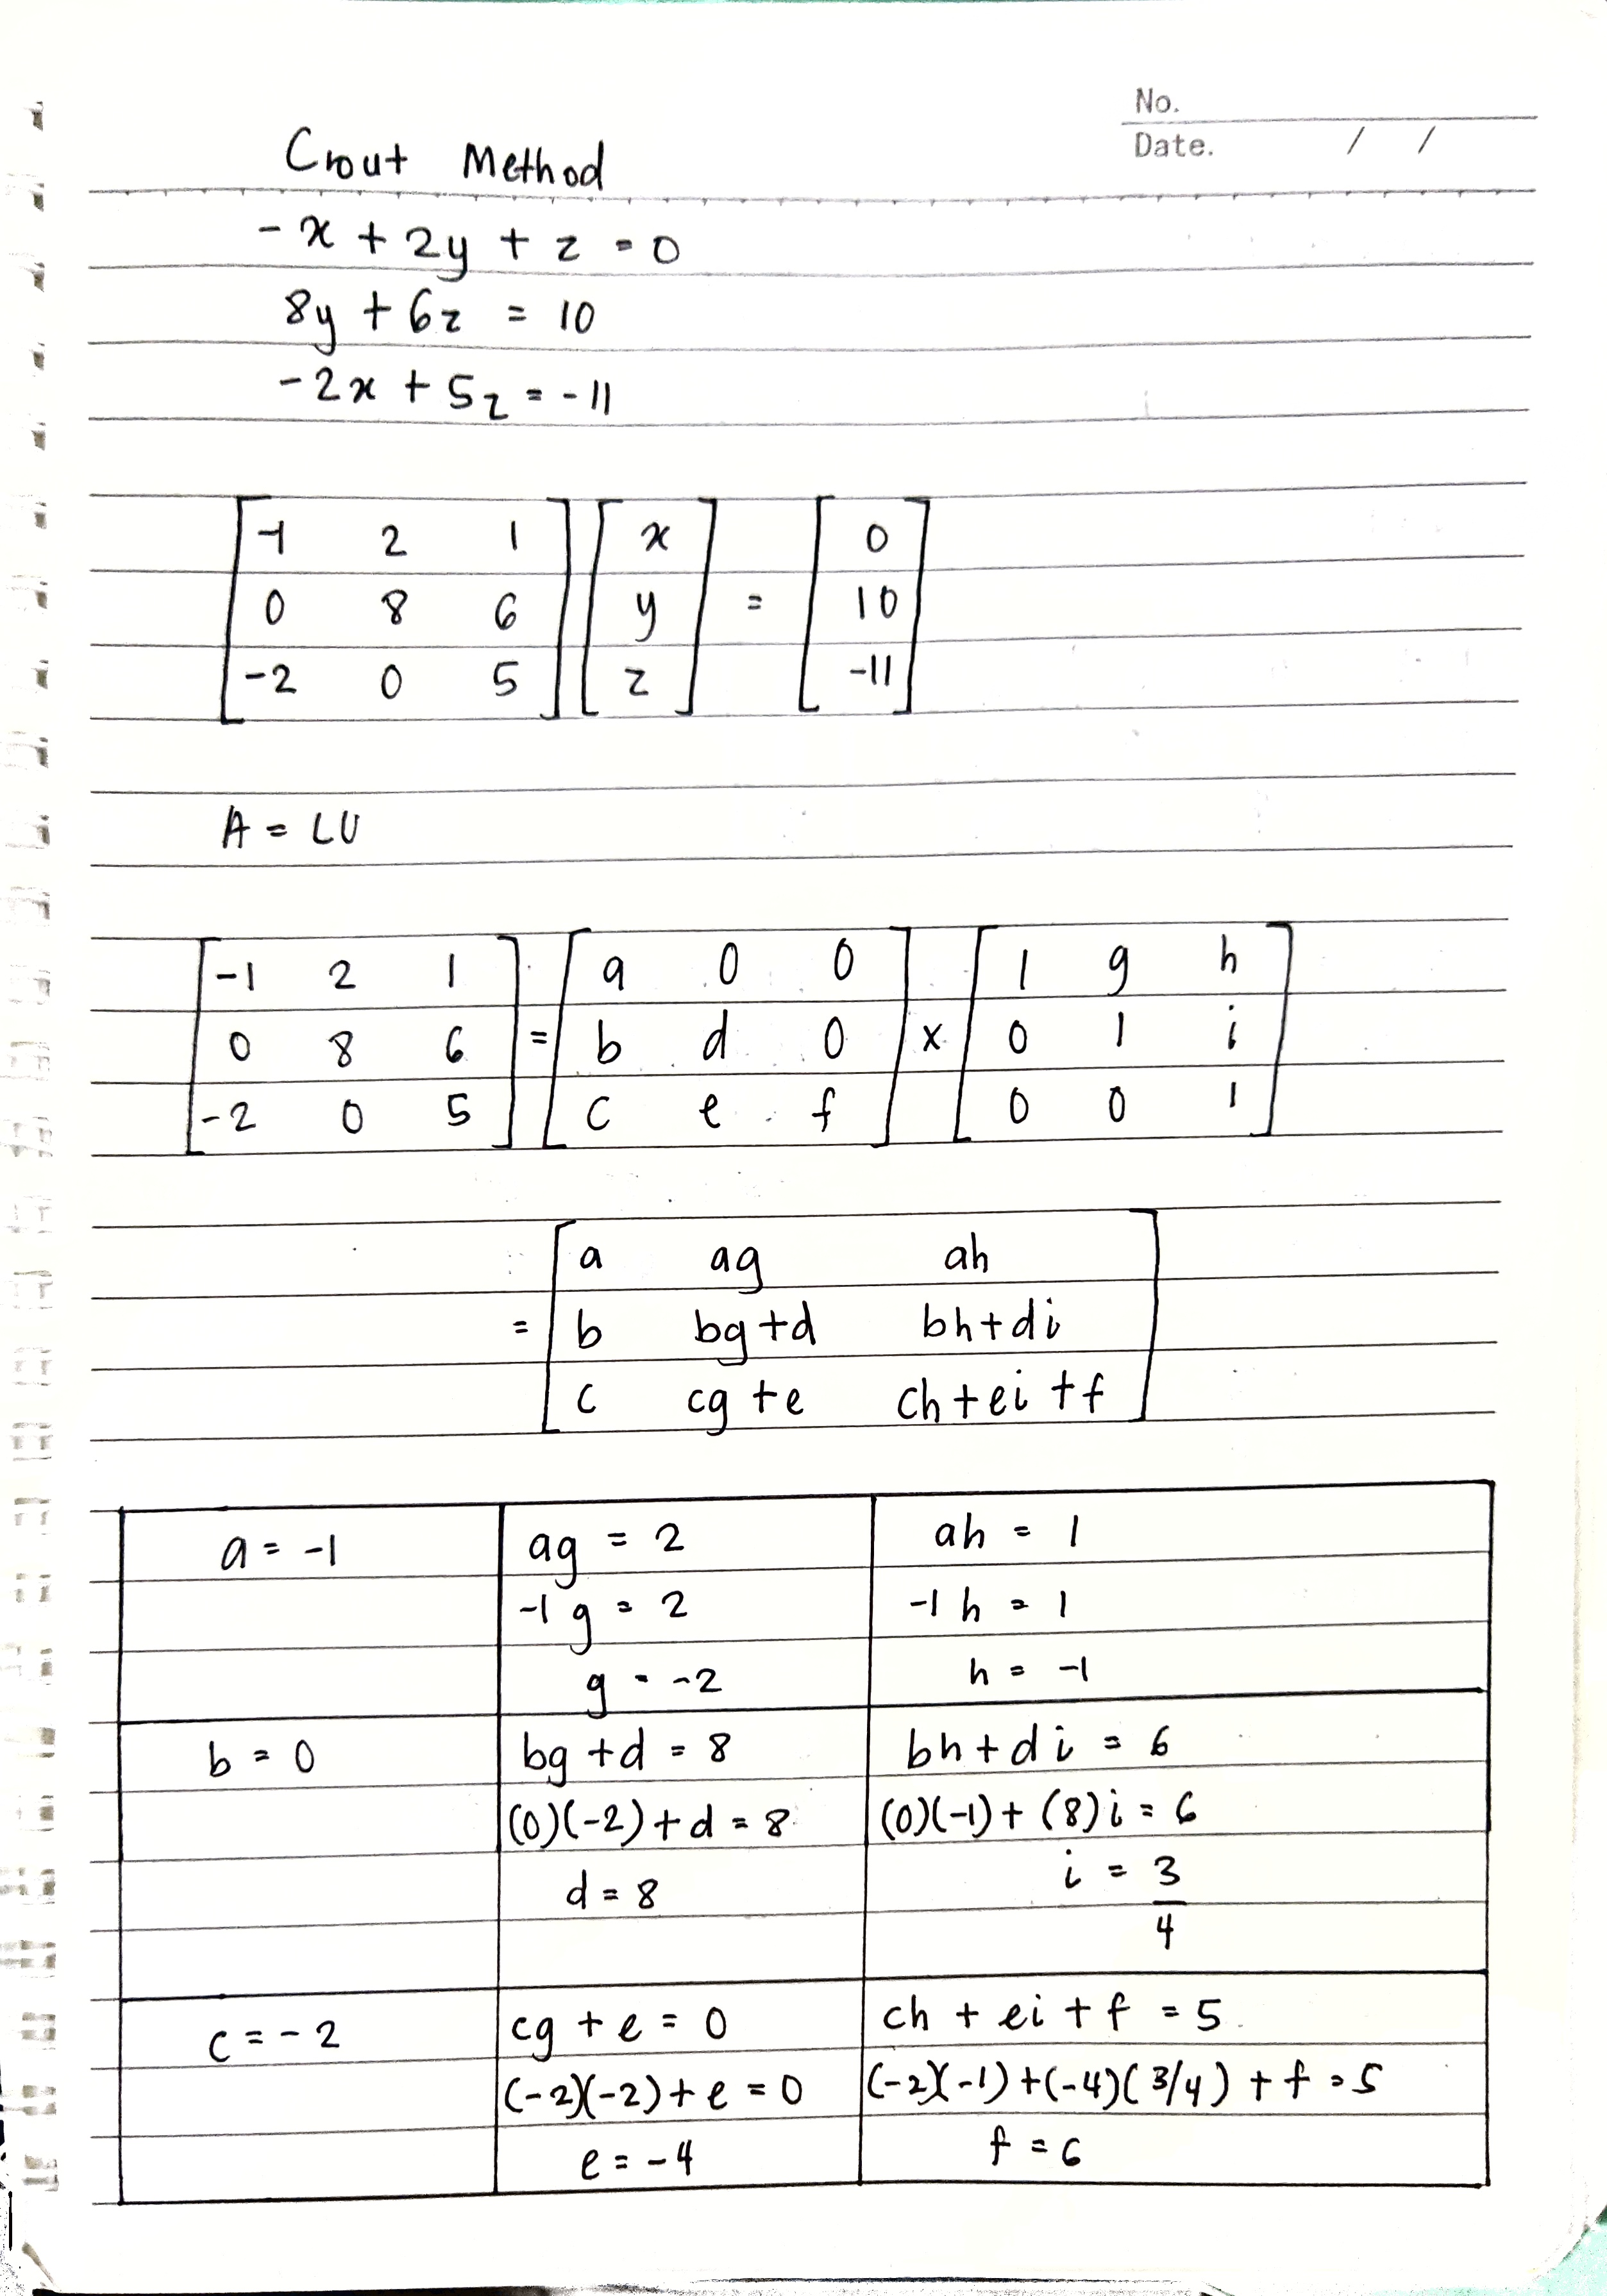 No.
Date. / /
Crout Method
-x + 2y + z = 0
8y + 6z = 10
-2x + 5z = -11
[-1 2 1] [x] = [0]
[0 8 6] [y] [10]
[-2 0 5] [z] [-11]
A = LU
[-1 2 1] = [a 0 0] x [1 g h]
[0 8 6] [b d 0] [0 1 i]
[-2 0 5] [c e f] [0 0 1]
= [a ag ah]
[b bg+d bh+di]
[c cg+e ch+ei+f]
a = -1
ag = 2
-1g = 2
g = -2
ah = 1
-1h = 1
h = -1
b = 0
bg+d = 8
(0)(-2)+d = 8
d = 8
bh+di = 6
(0)(-1)+(8)i = 6
i = 3/4
c = -2
cg+e = 0
(-2)(-2)+e = 0
e = -4
ch+ei+f = 5
(-2)(-1)+(-4)(3/4)+f = 5
f = 6